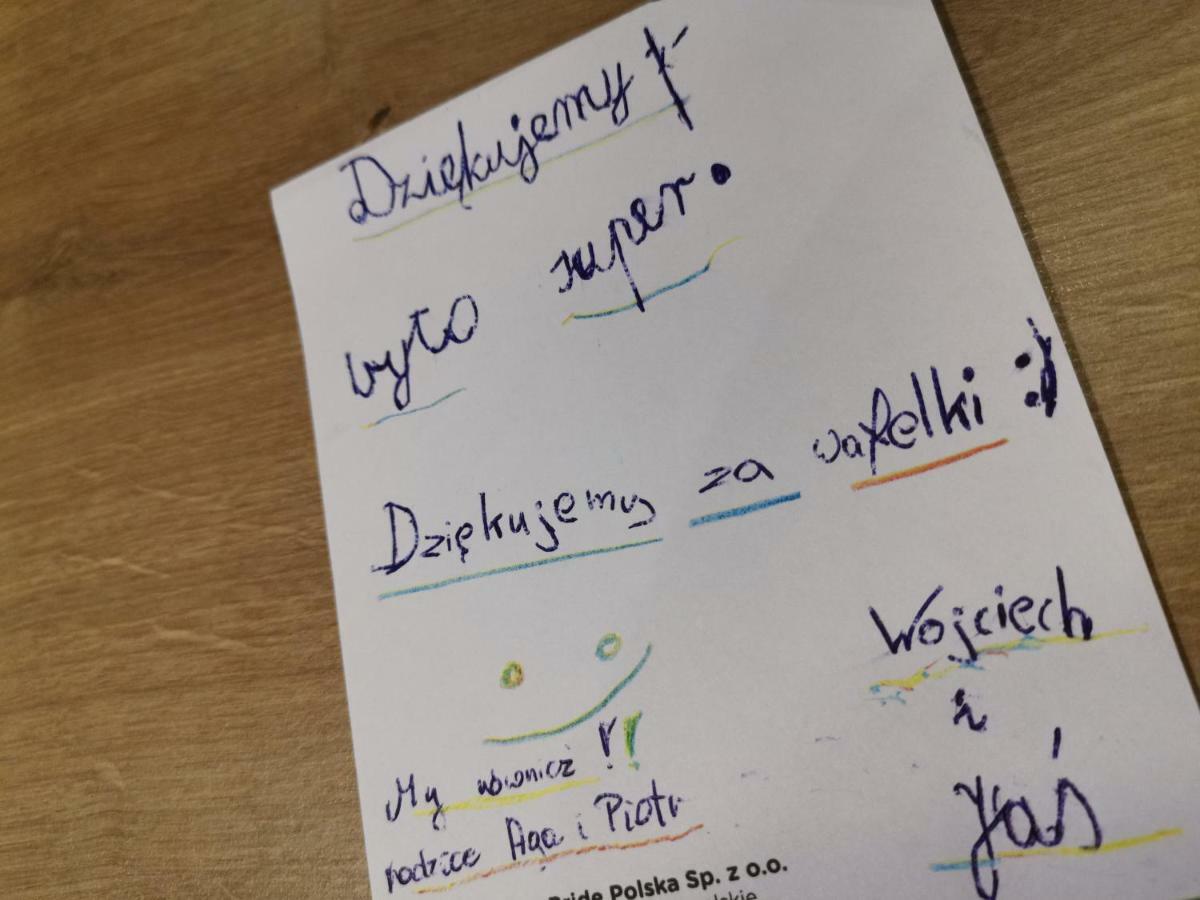 Dziękujemy!
było super.
Dziękujemy za wafelki :)
Wojciech
i
Jaś
My również !!
rodzice Aga i Piotr
Pride Polska Sp. z o.o.